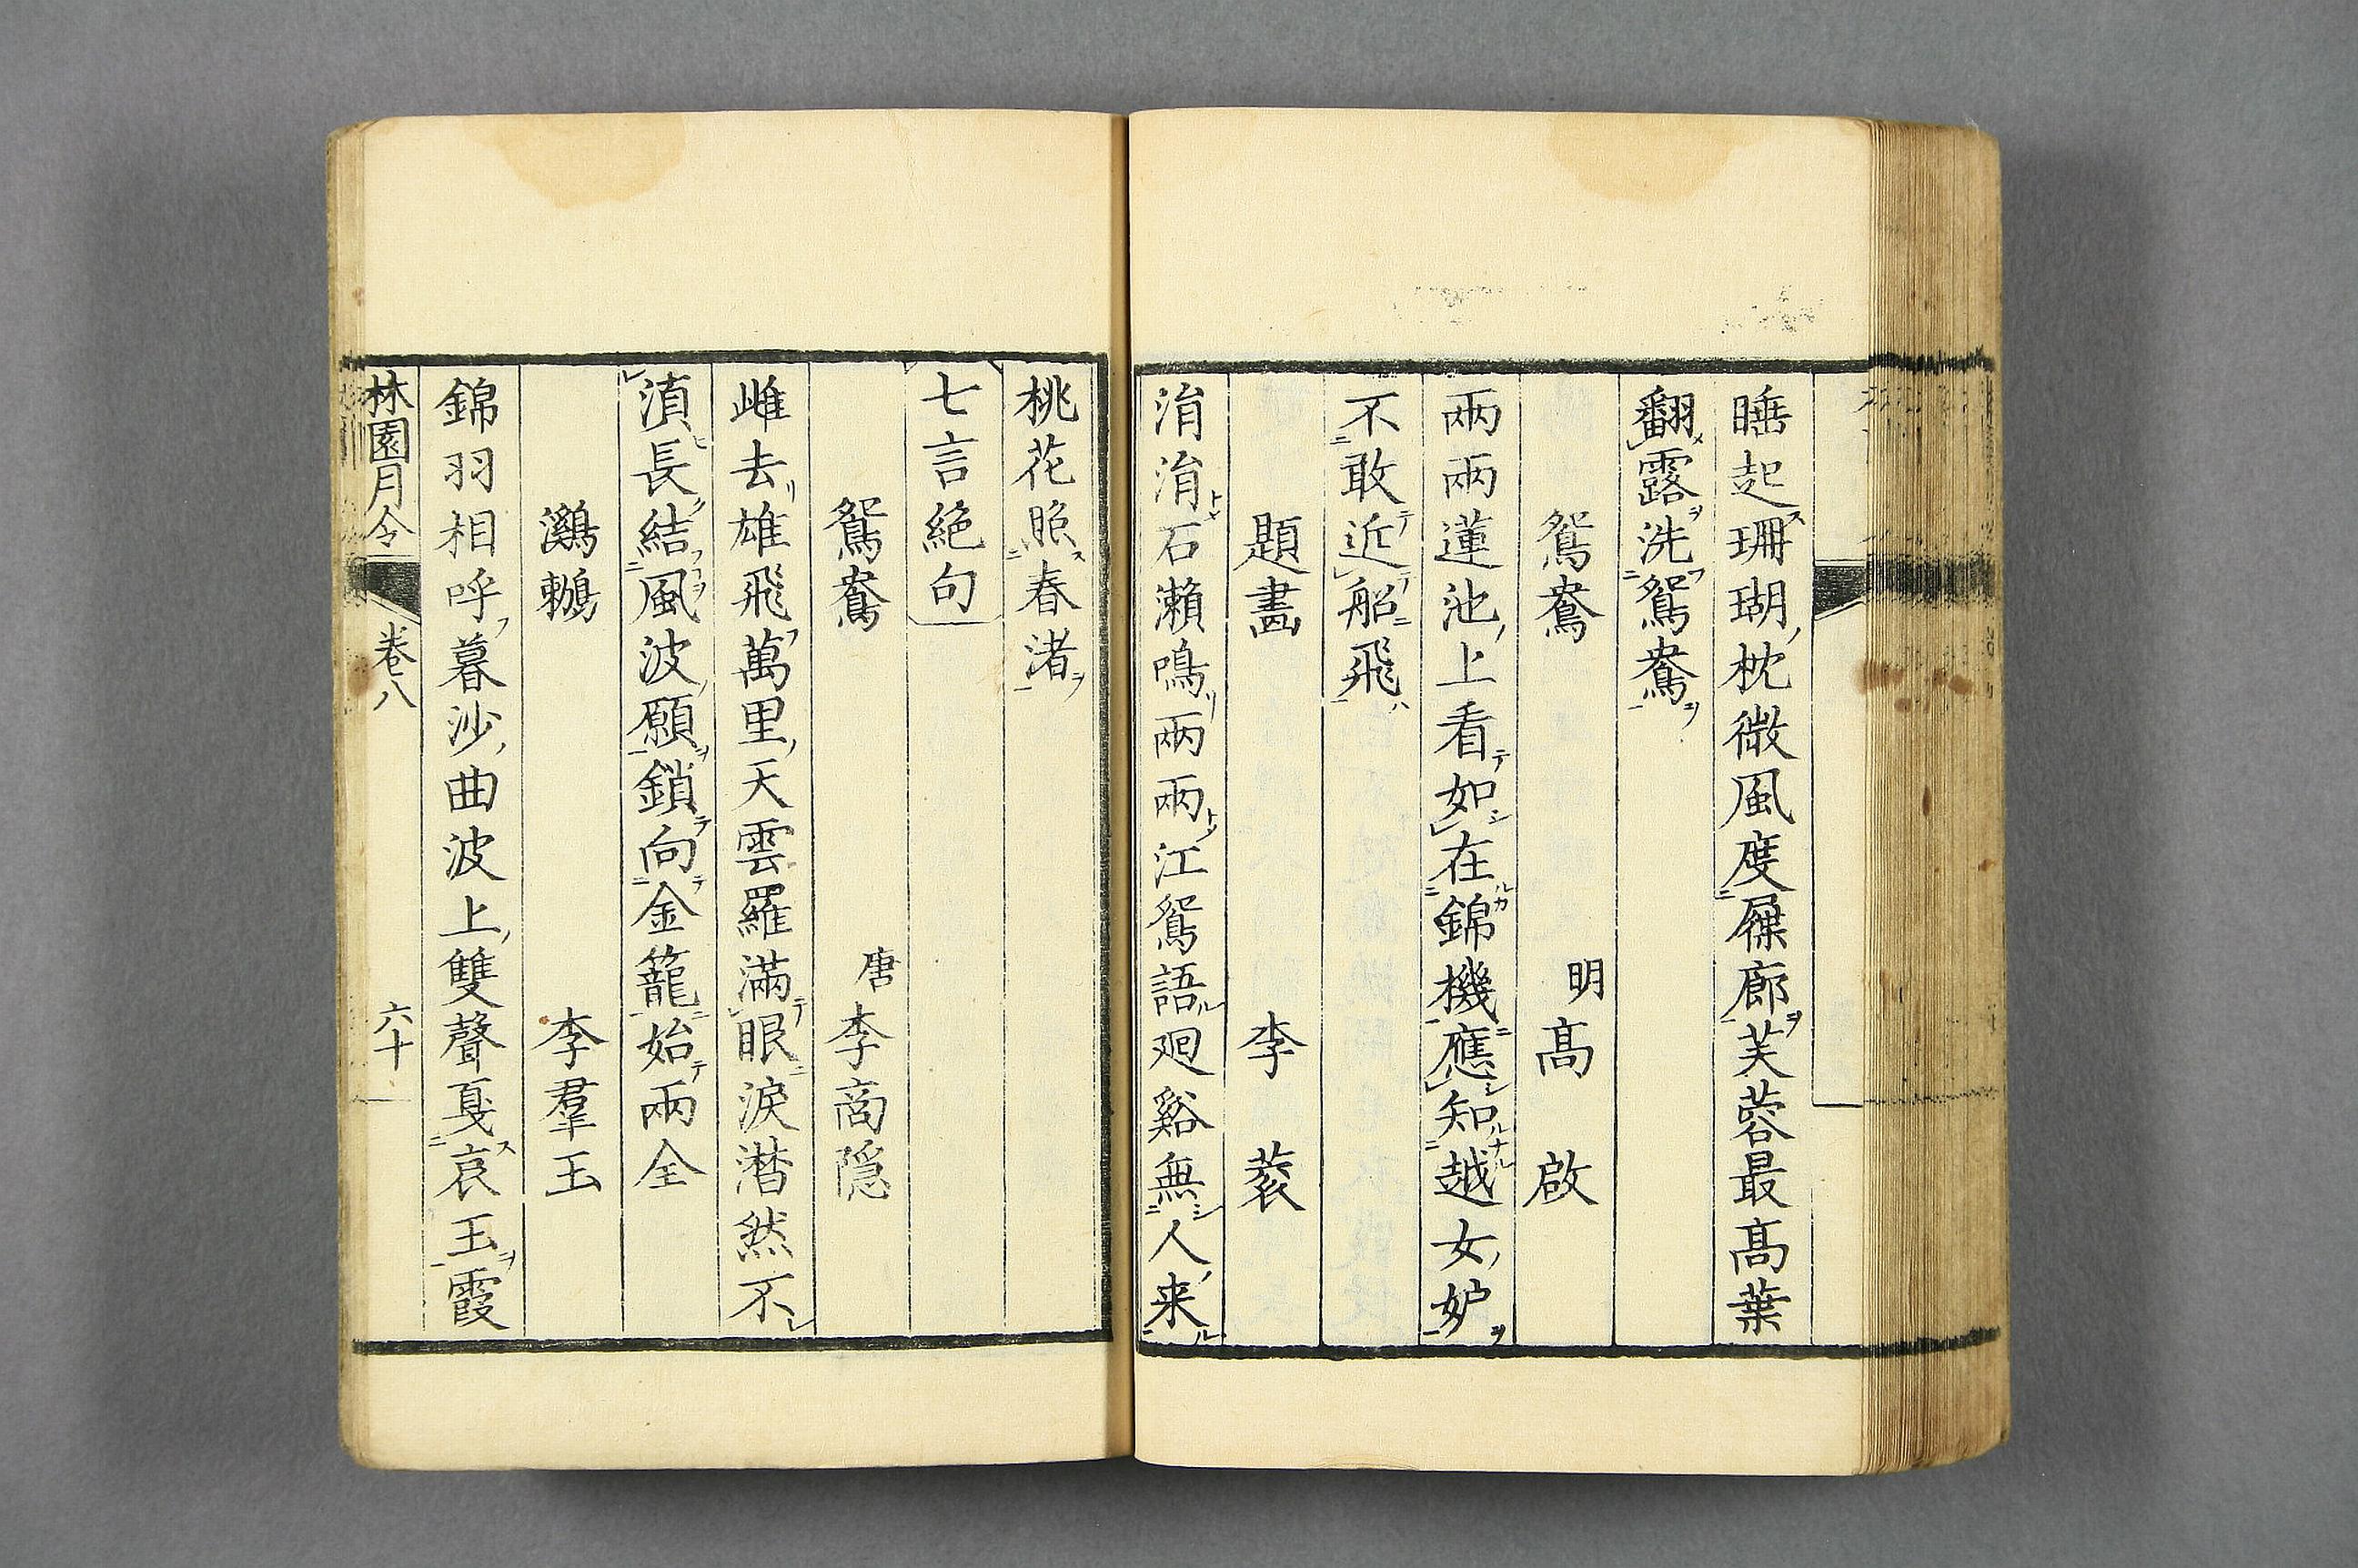 睡起珊瑚枕微風度屧廊芙蓉最髙葉
翻露洗鴛鴦
鴛鴦 明 髙啟
兩兩蓮池上看如在錦機應知越女妒
不敢近船飛
題畫 李裘
涓涓石瀨鳴兩兩江鴛語廻谿無人来
桃花照春渚
七言絕句
鴛鴦 唐 李商隠
雌去雄飛萬里天雲羅滿眼淚潸然不
湏長結風波願鎖向金籠始兩全
鸂鶒 李羣玉
錦羽相呼暮沙曲波上雙聲戛哀玉霞
林園月令 卷八 六十